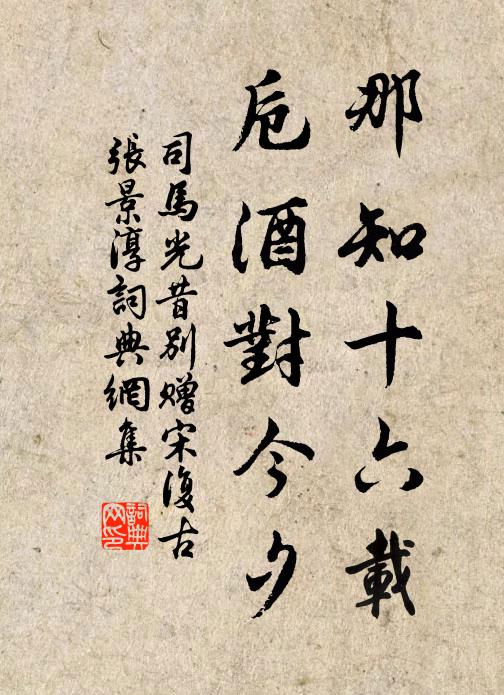 那知十六載
卮酒對今夕
司馬光昔別贈宋復古
張景淳詞典網集
詞典网印